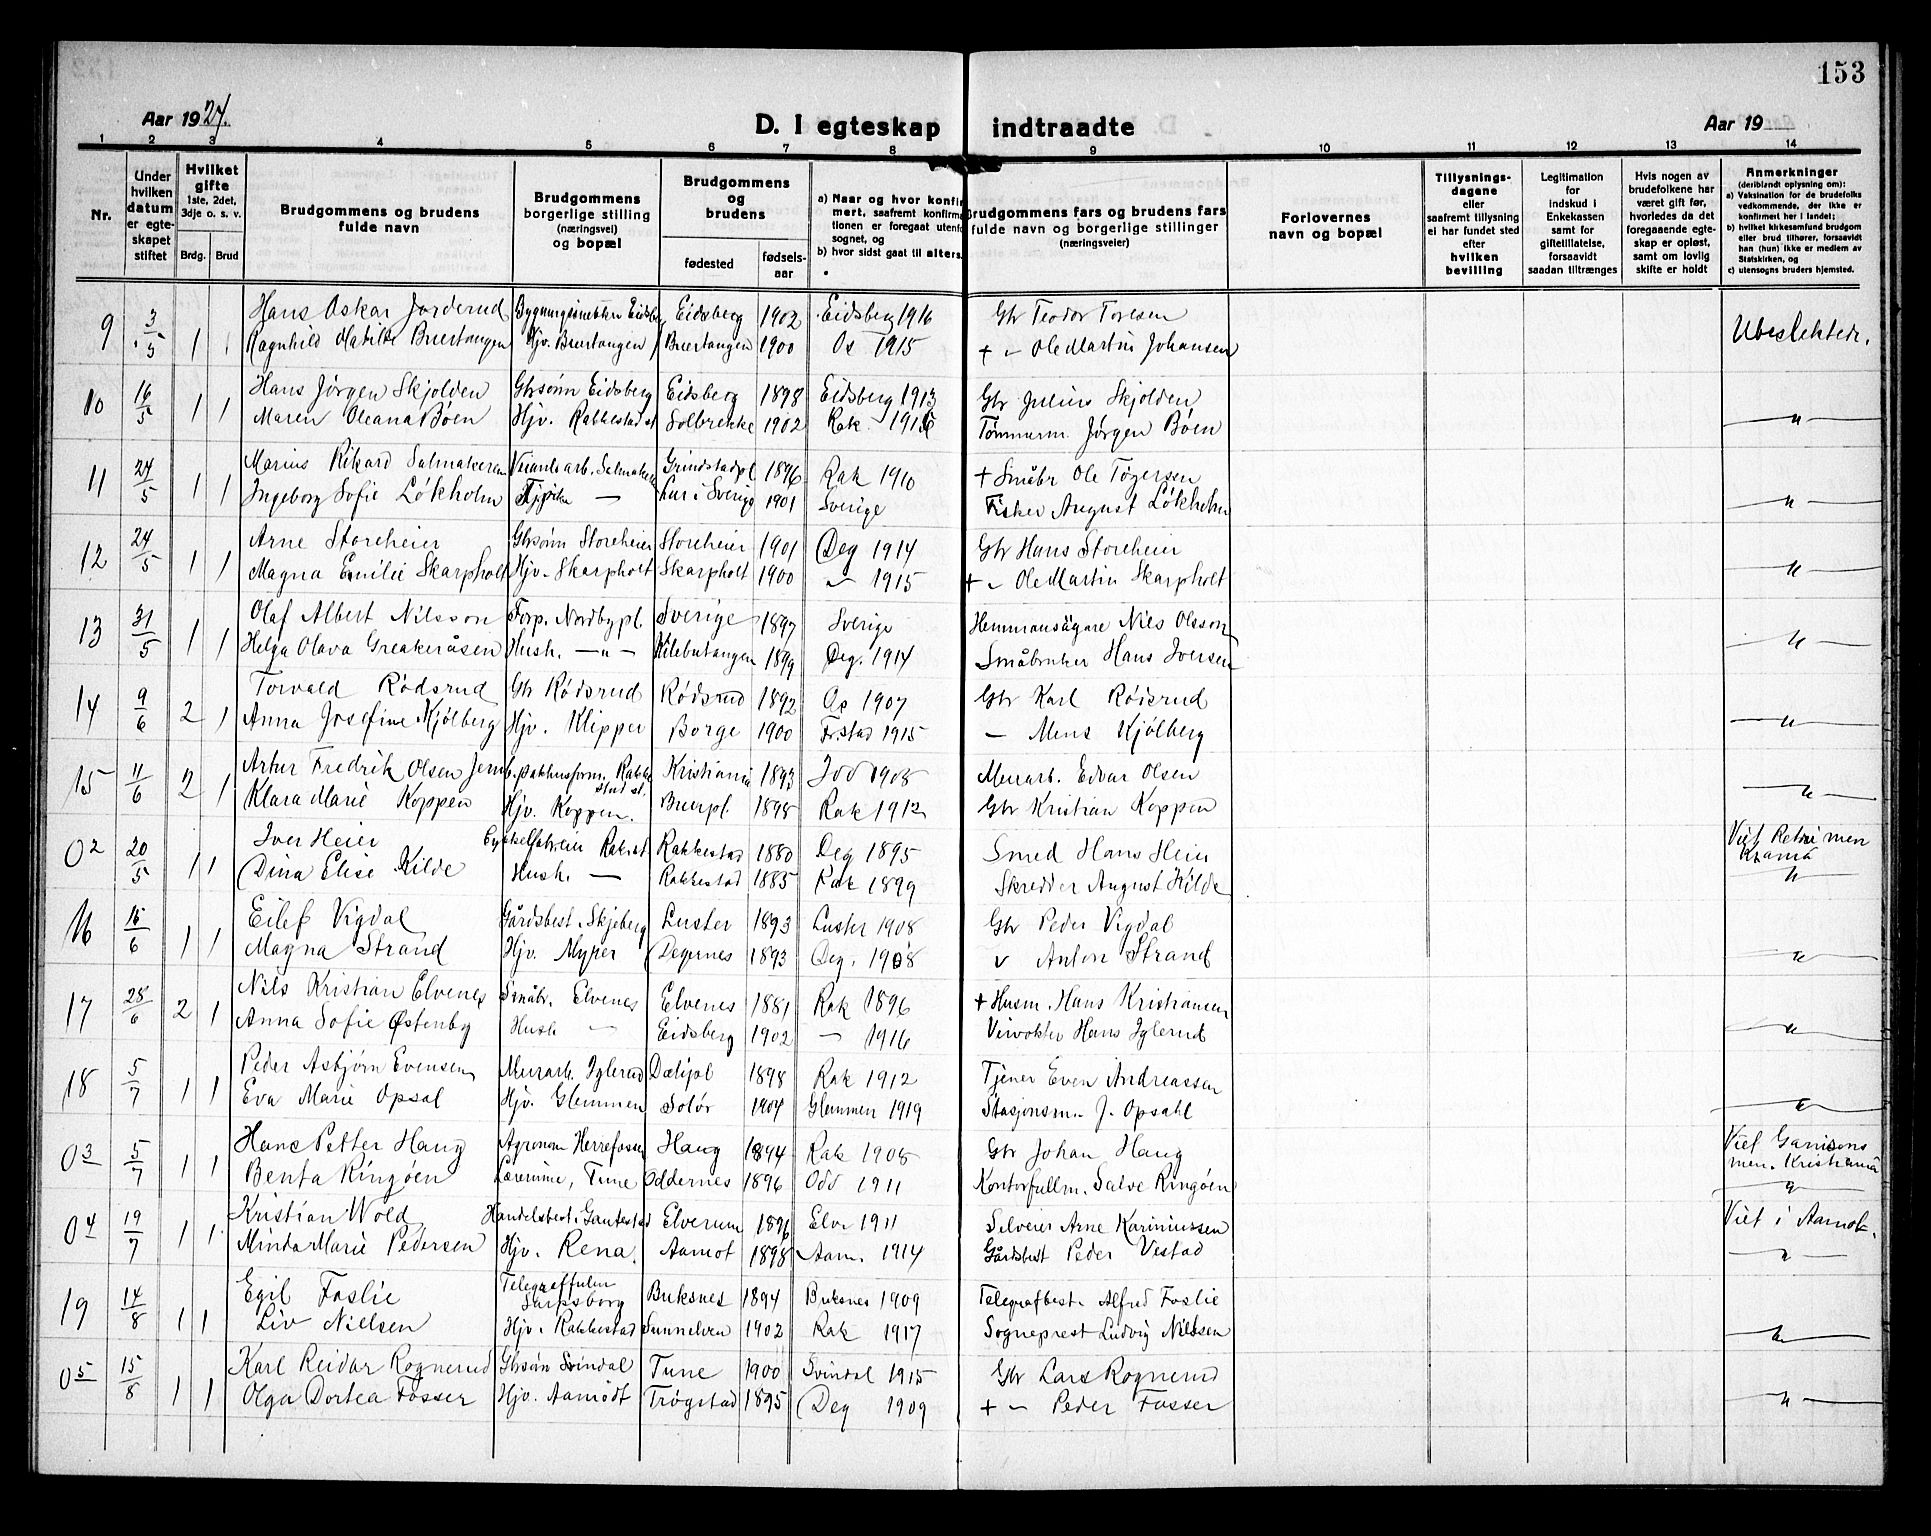 153
Aar 1924.
D. I egteskap indtraadte
Aar 19
1 2 3 4 5 6 7 8 9 10 11 12 13 14
Nr.
Under hvilken datum er egteskapet stiftet
Hvilket gifte 1ste, 2det, 3dje o. s. v.
Brdg. Brud
Brudgommens og brudens fulde navn
Brudgommens borgerlige stilling (næringsvei) og bopæl
Brudgommens og brudens
fødested
fødselsaar
a) Naar og hvor konfirmert, saafremt konfirmationen er foregaat utenfor sognet, og
b) hvor sidst gaat til alters.
Brudgommens fars og brudens fars fulde navn og borgerlige stillinger (næringsveier)
Forlovernes navn og bopæl
Tillysningsdagene eller saafremt tillysning ei har fundet sted efter hvilken bevilling
Legitimation for indskud i Enkekassen samt for giftetillatelse, forsaavidt saadan tiltrænges
Hvis nogen av brudefolkene har været gift før, hvorledes da det foregaaende egteskap er opløst, samt om lovlig skifte er holdt
Anmerkninger
(deriblandt oplysning om):
a) Vaksination for de brudefolks vedkommende, der ikke er konfirmert her i landet;
b) hvilket kirkesamfund brudgom eller brud tilhører, forsaavidt han (hun) ikke er medlem av Statskirken, og
c) utensogns bruders hjemsted.
9 3/5 Hans Oskar Jorderud Eidsberg 1902 Eidsberg 1916 Gbr Teodor Toresen Ubeslektede.
1 1 Ragnhild Matilde Buertangen Hjv. Buertangen Buertangen 1900 Os 1915 + – Ole Martin Johansen
10 16/5 Hans Jörgen Skjolden Gbrsönn Eidsberg Eidsberg 1898 Eidsberg 1913 Gbr Julius Skjolden
1 1 Maren Oleana Böen Hjv. Rakkestad st Solbrekke 1902 Rak. Tömmerm. Jörgen Böen — " —
11 24/5 Marius Rikard Salmakeren Grindstadpl 1896 Rak 1910 + Småbr Ole Tögersen
1 1 Ingeborg Sofie Lökholm — Lur i Sverige 1901 Sverige Fisker August Lökholm — " —
12 24/5 Arne Storeheier Gbrsönn Storeheier Storeheier 1901 Deg 1914 Gbr Hans Storeheier
1 1 Magna Emilie Skarpholt Hjv. Skarpholt Skarpholt 1900 – 1915 + – Ole Martin Skarpholt — " —
13 31/5 Olaf Albert Nilsson Forp. Nordbypl. Sverige 1897 Sverige Hemmansägare Nils Olsson
1 1 Helga Olava Greakeråsen Hush. — " — Kilebutangen 1899 Deg. 1914 Småbruker Hans Iversen — " —
14 9/6 Torvald Rödsrud Gbr Rödsrud Rödsrud 1892 Os 1907 Gbr Karl Rödsrud
2 1 Anna Josefine Kjölberg Hjv. Klipper Borge 1900 Fr.stad 1915 — Mens Kjölberg — " —
15 11/6 Artur Fredrik Olsen Kristiania 1893 1908 Murarb. Edvar Olsen
2 1 Klara Marie Koppen Hjv. Koppen. Buerpl. 1898 Rak 1912 Gbr Kristian Koppen — " —
02 20/5 Iver Heier Rak.st Rakkestad 1880 Deg 1895 Smed Hans Heier
1 1 Dina Elise Kilde Hush. — Rakkestad 1885 Rak 1899 Skredder August Kilde — " —
16 15/6 Eilef Vigdal Gårdsbest. Skjeberg Luster 1893 Luster 1908 Gbr Peder Vigdal
1 1 Magna Strand Hjv. Myrer Degernes 1893 Deg. 1908 " Anton Strand — " —
17 28/6 Nils Kristian Elvenes Småbr. Elvenes Elvenes 1881 Rak 1896 + Husm. Hans Kristiansen
2 1 Anna Sofie Østenby Hush — Eidsberg 1902 — 1916 Veivokter Hans Iglerud — " —
18 5/7 Peder Asbjörn Evensen Murarb. Iglerud 1898 Rak 1912 Tjener Even Andreassen
1 1 Eva Marie Opsal Hjv. Glemmen Solör 1904 Glemmen 1919 Stasjonsm. J. Opsahl — " —
03 5/7 Hans Petter Haug Agronom Herrefosser Haug 1894 Rak 1908 Gbr Johan Haug Viet Garnisons
1 1 Benta Ringöen Lærerinne, Tune Oddernes 1896 Odd 1911 Kontorfullm. Salve Ringöen men. Kristiania — " —
04 19/7 Kristian Wold Handelsbest. Elverum 1896 Elv. 1911 Selveier Arne Kariniussen Viet i Aamot.
1 1 Minda Marie Pedersen Hjv. Rena. Aamot 1898 Aam. 1914 Gårdsbest Peder Vestad — " —
19 14/8 Egil Foslie Sarpsborg Buksnes 1894 Buksnes 1909 Telegrafbest. Alfred Foslie
1 1 Liv Nielsen Hjv. Rakkestad Sunnelven 1902 Rak 1917 Sogneprest Ludvig Nielsen — " —
05 15/8 Karl Reidar Rognerud Gbrsön Svindal Tune 1900 Svindal 1915 Gbr Lars Rognerud
1 1 Olga Dortea Fosser Hjv. Aamodt Trøgstad 1895 Deg 1909 + – Peder Fosser — " —